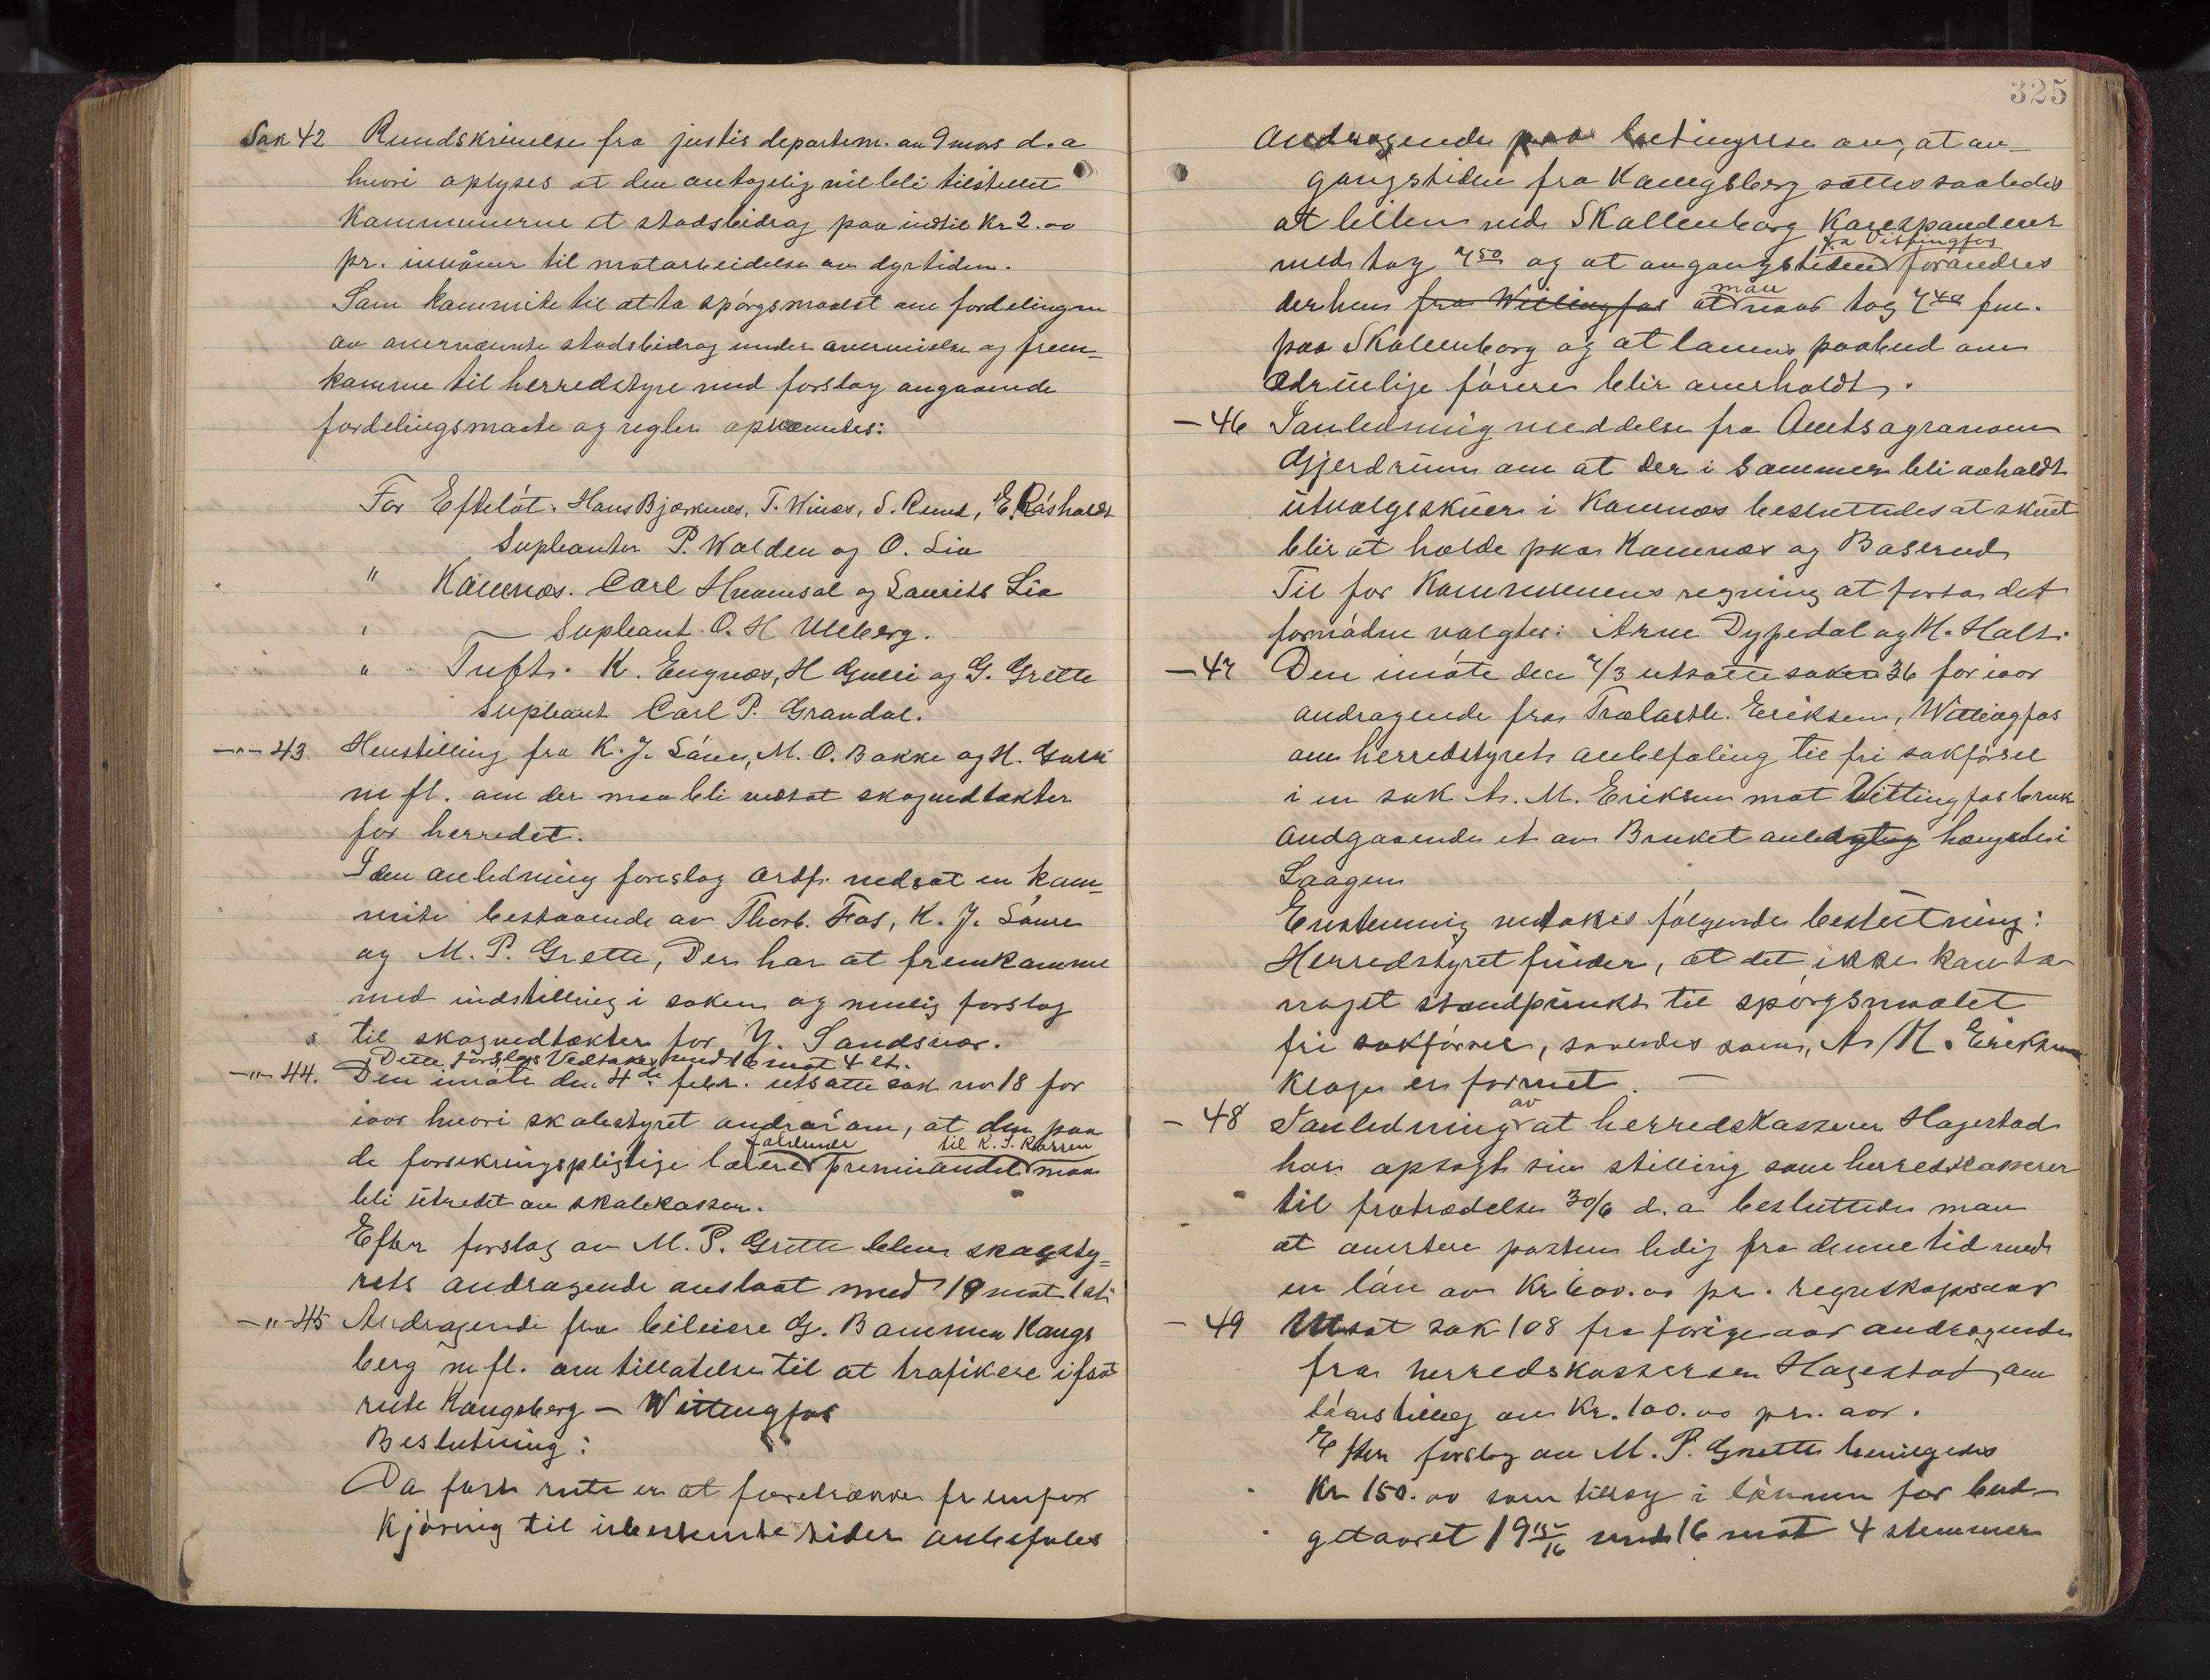 Sak 42 Rundskrivelse fra justisdepartem. av 9 mars d.a
hvori oplyses at den antagelig vil bli tilstillet
Kommunerne et stadsbidrag paa indtil Kr 2.00
pr. invåner til motarbeidelse av dyrtiden.
Som kommite til at ta spørgsmaalet om fordelingen
av overnævnte stadsbidrag under overveielse og frem=
komme til herredstyre med forslag angaaende
fordelingsmaate og regler opnævntes:
For Efteløt. Hans Bjørknes, T. Winæs, S. Rund, E. Råsholdt
Supleanter P. Walden og O. Lia
" Komnæs. Carl Hvamsal og Laurits Lia
Supleant O. H Ulleberg.
" Tuft. K. Engnæs, H Gulli og G. Grette
Supleant Carl P. Grandal.
—"— 43. Henstilling fra K. J. Såner, M. O. Bakke og H. Gulli
m fl. om der maa bli vedtat skogvedtækter
for herredet.
I den anledning foreslog ordf. nedsat en kom=
mite bestaaende av Thorb. Fos, K. J. Såner
og M. P. Grette, Den har at fremkomme
med indstilling i saken og mulig forslag
til skogvedtækter for Y. Sandsvær.
Dette forslag Vedtokes med 16 mot 4 st.
—"— 44. Den i møte den 4de febr. utsatte sak no 18 for
iaar hvori skolestyret andrar om, at den paa
faldende til K. S. Kassen
de forsikringspligtige lærere premieandel maa
bli utredet av skolekassen.
Efter forslag av M. P. Grette blev skolesty=
rets andragende avslaat med 19 mot 1 st.
—"— 45 Andragende fra bileiere G. Bammen Kongs
berg m fl. om tillatelse til at trafikere i fast
rute Kongsberg — Wittingfos
Beslutning:
Da fast rute er at foretrække fremfor
Kjøring til ubestemte tider anbefales
325
andragende paa betingelse av, at av-
gangstiden fra Kongsberg sættes saaledes
at bilen ved Skollenborg Korrespanderer
fra Vittingfos
med tog 7 50 og at avgangstiden forandres
man
derhen fra Wittingfos at naar tog 7 40 fm.
paa Skollenborg og at lovens paabud om
ædruelige førere blir overholdt.
— 46 I anledning meddelelse fra Amtsagronom
Gjerdrum om at der i sommer bli avholdt
utvalgsskuer i Komnæs besluttedes at skuet
blir at holde paa Komnæs og Baserud
Til for Kommunens regning at foreta det
fornødne valgtes: Arne Dypedal og H. Holt.
— 47 Den i møte den 2/3 utsatte saken 36 for iaar
andragende fra Trælasth. Eriksen, Wittingfos
om herredstyrets anbefaling til fri sakførsel
i en sak A. M. Eriksen mot Vittingfos bruk
Andgaaende et av Bruket anledgtog hængsler i
Laagen
Enstemmig vedtokes følgende beslutning:
Herredstyret finder, at det ikke kan ta
noget standpunkt til spørgsmaalet
fri sakførsel, saaledes som A. M. Eriksens
Klage er formet. —
av
— 48 I anledning at herredskasserer Hagestad
har opsagt sin stilling som herredskasserer
til fratrædelse 30/6 d.a besluttedes man
at avertere posten ledig fra denne tid med
en løn av Kr 600.00 pr. regnskapsaar
— 49 Utsat sak 108 fra forige aar andragende
fra herredskasserer Hagestad om
lønstillæg av Kr. 100.00 pr. aar.
Efter forslag av M. P. Grette bevilgedes
Kr 150.00 som tillæg i lønnen for bud-
getaaret 19 15/16 med 16 mot 4 stemmer